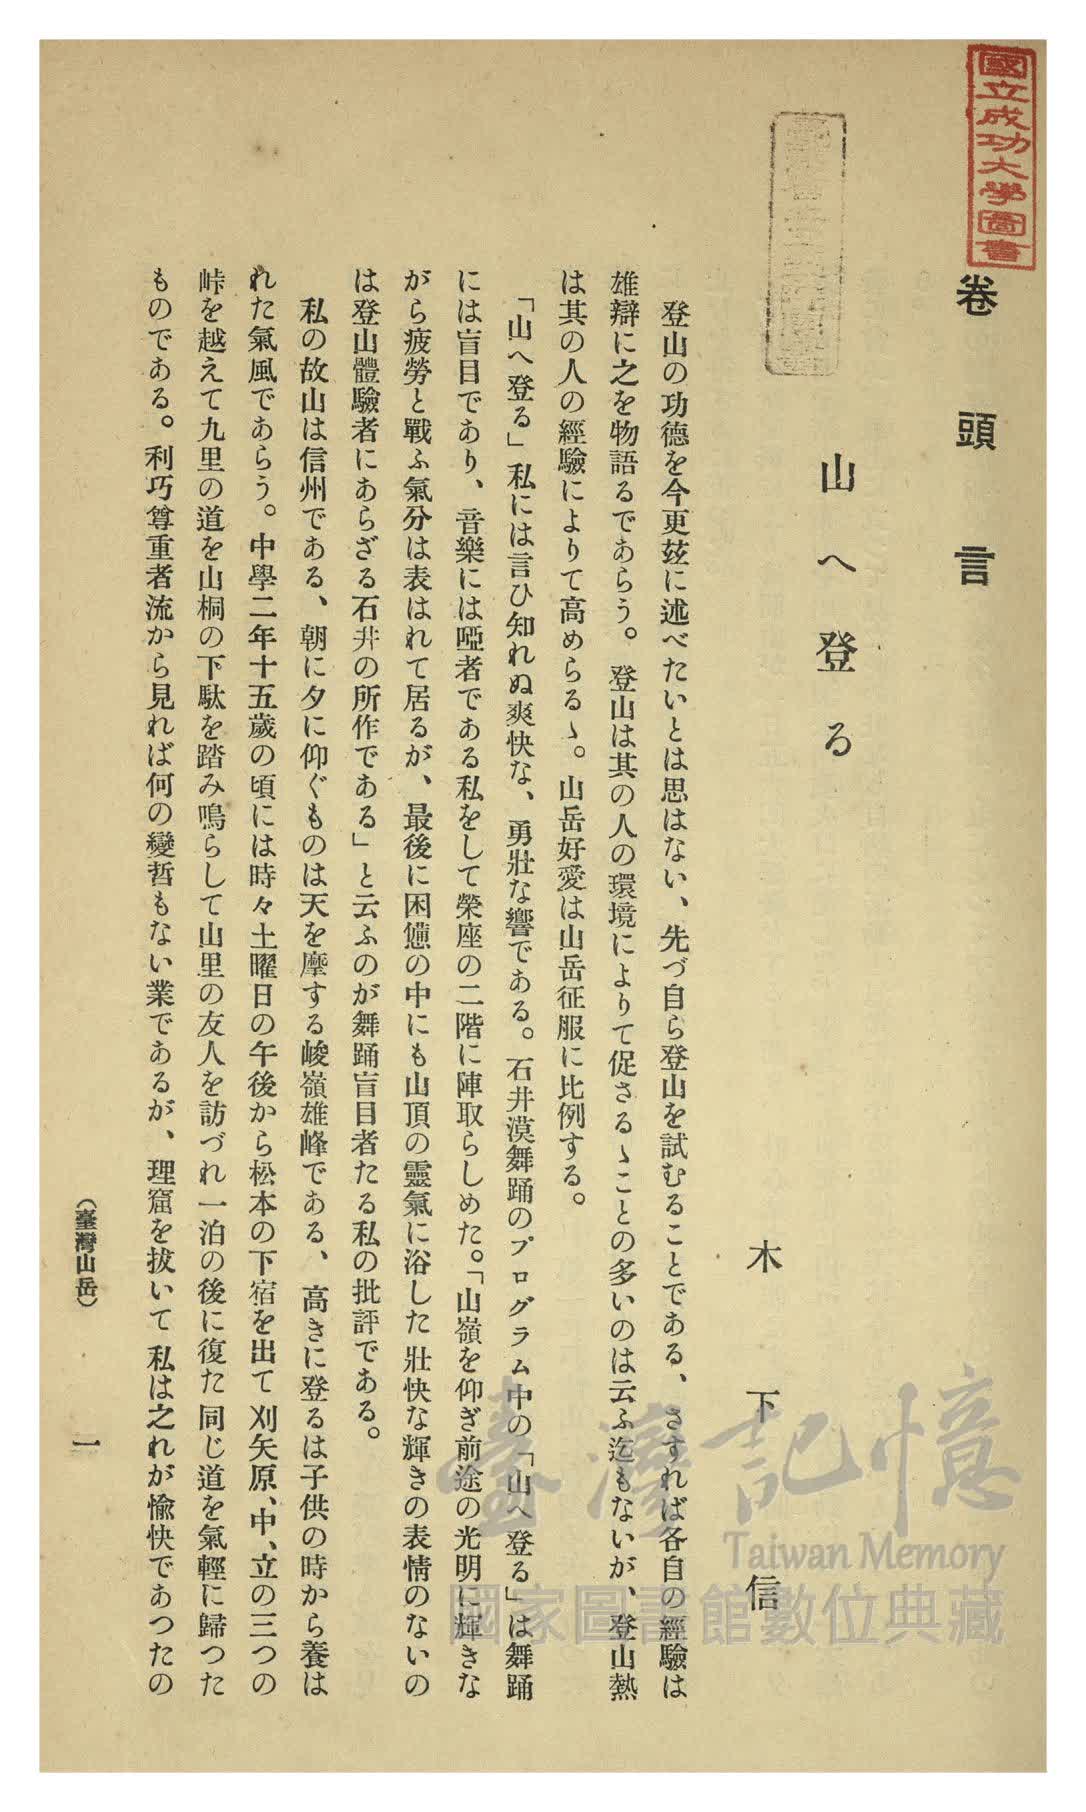 國立成功大學圖書
卷頭言
山へ登る
木下信
登山の功德を今更玆に述べたいとは思はない、先づ自ら登山を試むることである、さすれば各自の經驗は
雄辯に之を物語るであらう。登山は其の人の環境によりて促さるゝことの多いのは云ふ迄もないが、登山熱
は其の人の經驗によりて高めらるゝ。山岳好愛は山岳征服に比例する。
「山へ登る」私には言ひ知れぬ爽快な、勇壯な響である。石井漠舞踊のプログラム中の「山へ登る」は舞踊
には盲目であり、音樂には啞者である私をして榮座の二階に陣取らしめた。「山嶺を仰ぎ前途の光明に輝きな
がら疲勞と戰ふ氣分は表はれて居るが、最後に困憊の中にも山頂の靈氣に浴した壯快な輝きの表情のないの
は登山體驗者にあらざる石井の所作である」と云ふのが舞踊盲目者たる私の批評である。
私の故山は信州である、朝に夕に仰ぐものは天を摩する峻嶺雄峰である、高きに登るは子供の時から養は
れた氣風であらう。中學二年十五歲の頃には時々土曜日の午後から松本の下宿を出て刈矢原、中、立の三つの
峠を越えて九里の道を山桐の下駄を踏み鳴らして山里の友人を訪づれ一泊の後に復た同じ道を氣輕に歸つた
ものである。利巧尊重者流から見れば何の變哲もない業であるが、理窟を拔いて私は之れが愉快であつたの
(臺灣山岳)
一
臺灣記憶
Taiwan Memory
國家圖書館數位典藏